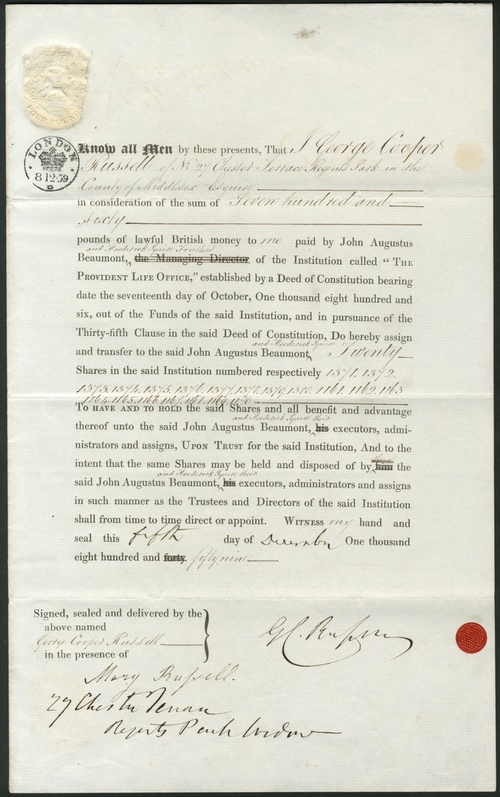 LONDON
8 12 59
B
Know all Men by these presents, That I George Cooper
Russell of No. 27 Chester Terrace Regents Park in the
County of Middlesex Esquire
in consideration of the sum of Seven hundred and
sixty
pounds of lawful British money to me paid by John Augustus
and Frederick Squire Trustees
Beaumont, the Managing Director of the Institution called “THE
PROVIDENT LIFE OFFICE,” established by a Deed of Constitution bearing
date the seventeenth day of October, One thousand eight hundred and
six, out of the Funds of the said Institution, and in pursuance of the
Thirty-fifth Clause in the said Deed of Constitution, Do hereby assign
and Frederick Squire
and transfer to the said John Augustus Beaumont, Twenty
Shares in the said Institution numbered respectively 1371. 1372.
1373. 1374. 1375. 1376. 1377. 1378. 1379. 1380. 1161. 1162. 1163
1164. 1165. 1166. 1167. 1168. 1169. 1170
TO HAVE AND TO HOLD the said Shares and all benefit and advantage
and Frederick Squire their
thereof unto the said John Augustus Beaumont, his executors, admi-
nistrators and assigns, UPON TRUST for the said Institution, And to the
intent that the same Shares may be held and disposed of by him the
and Frederick Squire their
said John Augustus Beaumont, his executors, administrators and assigns
in such manner as the Trustees and Directors of the said Institution
shall from time to time direct or appoint. WITNESS my hand and
seal this fifth day of December One thousand
eight hundred and forty fifty nine
Signed, sealed and delivered by the
above named
George Cooper Russell
in the presence of
G C Russell
Mary Russell.
27 Chester Terrace
Regents Park Widow